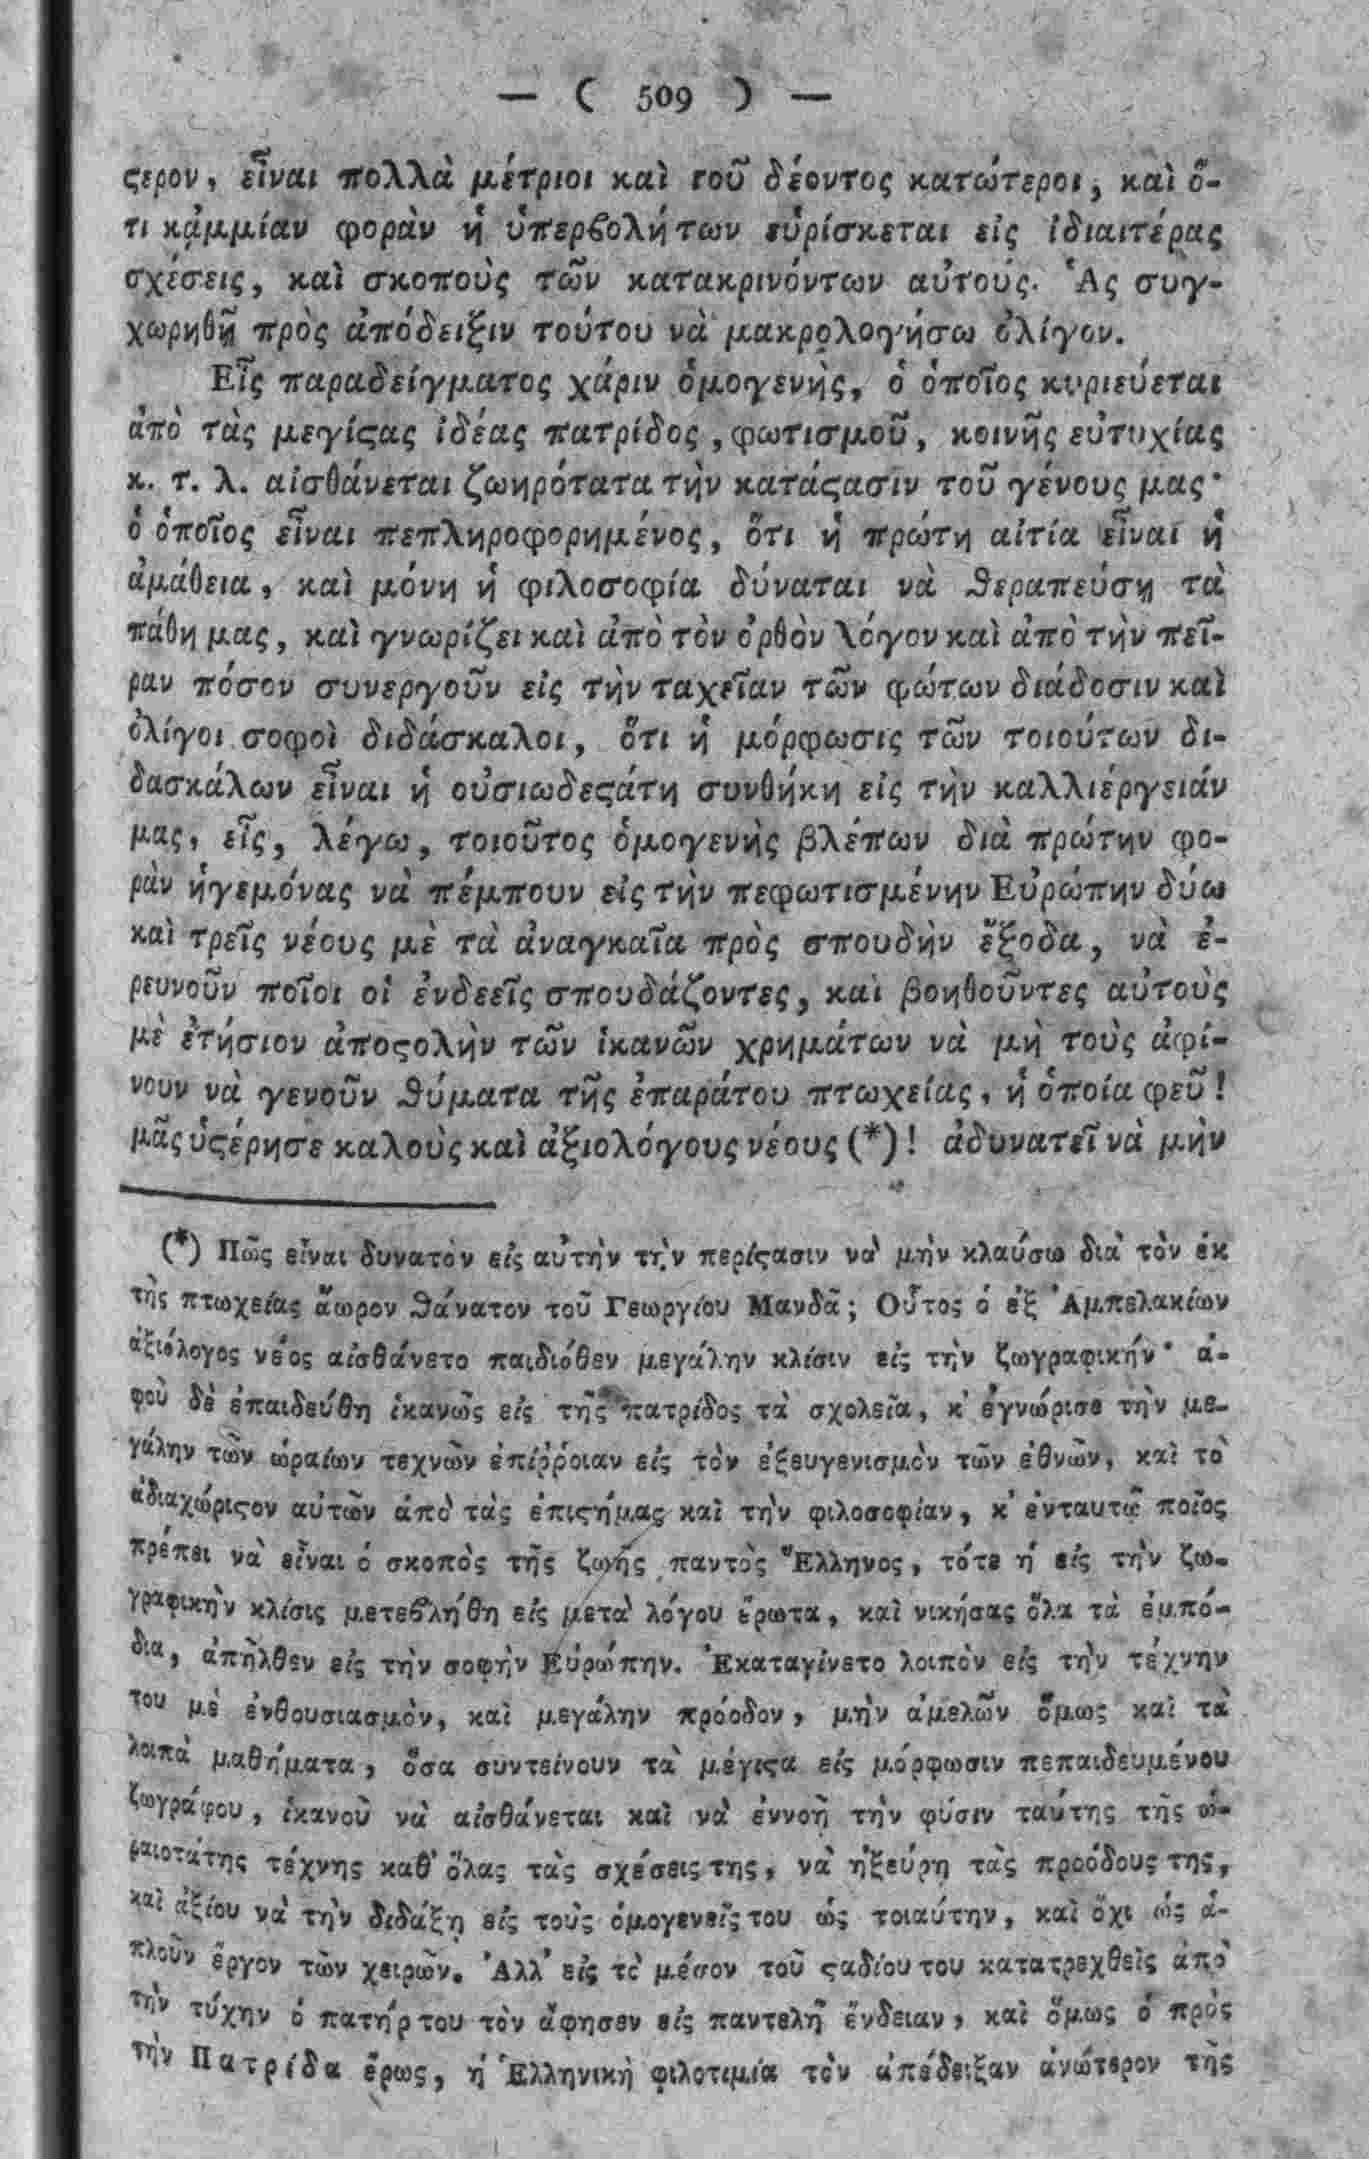 — ( 509 ) —
ϛερον, εἶναι πολλὰ μέτριοι καὶ τοῦ δέοντος κατώτεροι, καὶ ὅ-
τι κᾀμμίαν φορὰν ἡ ὑπερβολήτων εὑρίσκεται εἰς ἰδιαιτέρας
σχέσεις, καὶ σκοποὺς τῶν κατακρινόντων αὐτούς. Ἂς συγ-
χωρηθῇ πρὸς ἀπόδειξιν τούτου νὰ μακρολογήσω ὀλίγον.
Εἷς παραδείγματος χάριν ὁμογενὴς, ὁ ὁποῖος κυριεύεται
ἀπὸ τὰς μεγίϛας ἰδέας πατρίδος, φωτισμοῦ, κοινῆς εὐτυχίας
κ. τ. λ. αἰσθάνεται ζωηρότατα τὴν κατάϛασιν τοῦ γένους μας·
ὁ ὁποῖος εἶναι πεπληροφορημένος, ὅτι ἡ πρώτη αἰτία εἶναι ἡ
ἀμάθεια, καὶ μόνη ἡ φιλοσοφία δύναται νὰ θεραπεύσῃ τὰ
πάθη μας, καὶ γνωρίζει καὶ ἀπὸ τὸν ὀρθὸν λόγον καὶ ἀπὸ τὴν πεῖ-
ραν πόσον συνεργοῦν εἰς τὴν ταχεῖαν τῶν φώτων διάδοσιν καὶ
ὀλίγοι σοφοὶ διδάσκαλοι, ὅτι ἡ μόρφωσις τῶν τοιούτων δι-
δασκάλων εἶναι ἡ οὐσιωδεϛάτη συνθήκη εἰς τὴν καλλιέργειάν
μας, εἷς, λέγω, τοιοῦτος ὁμογενὴς βλέπων διὰ πρώτην φο-
ρὰν ἡγεμόνας νὰ πέμπουν εἰς τὴν πεφωτισμένην Εὐρώπην δύω
καὶ τρεῖς νέους μὲ τὰ ἀναγκαῖα πρὸς σπουδὴν ἔξοδα, νὰ ἐ-
ρευνοῦν ποῖοι οἱ ἐνδεεῖς σπουδάζοντες, καὶ βοηθοῦντες αὐτοὺς
μὲ ἐτήσιον ἀποϛολὴν τῶν ἱκανῶν χρημάτων νὰ μὴ τοὺς ἀφί-
νουν νὰ γενοῦν θύματα τῆς ἐπαράτου πτωχείας, ἡ ὁποία φεῦ!
μᾶς ὑϛέρησε καλοὺς καὶ ἀξιολόγους νέους (*)! ἀδυνατεῖ νὰ μὴν
(*) Πῶς εἶναι δυνατὸν εἰς αὐτὴν τὴν περίϛασιν νὰ μὴν κλαύσω διὰ τὸν ἐκ
τῆς πτωχείας ἄωρον θάνατον τοῦ Γεωργίου Μανδᾶ; Οὗτος ὁ ἐξ Ἀμπελακίων
ἀξιόλογος νέος αἰσθάνετο παιδιόθεν μεγάλην κλίσιν εἰς τὴν ζωγραφικήν· ἀ-
φοῦ δὲ ἐπαιδεύθη ἱκανῶς εἰς τῆς πατρίδος τὰ σχολεῖα, κ' ἐγνώρισε τὴν με-
γάλην τῶν ὡραίων τεχνῶν ἐπίῤῥοιαν εἰς τὸν ἐξευγενισμὸν τῶν ἐθνῶν, καὶ τὸ
ἀδιαχώριϛον αὐτῶν ἀπὸ τὰς ἐπιϛήμας καὶ τὴν φιλοσοφίαν, κ' ἐνταυτῷ ποῖος
πρέπει νὰ εἶναι ὁ σκοπὸς τῆς ζωῆς παντὸς Ἕλληνος, τότε ἡ εἰς τὴν ζω-
γραφικὴν κλίσις μετεβλήθη εἰς μετὰ λόγου ἔρωτα, καὶ νικήσας ὅλα τὰ ἐμπό-
δια, ἀπῆλθεν εἰς τὴν σοφὴν Εὐρώπην. Ἐκαταγίνετο λοιπὸν εἰς τὴν τέχνην
του μὲ ἐνθουσιασμὸν, καὶ μεγάλην πρόοδον, μὴν ἀμελῶν ὅμως καὶ τὰ
λοιπὰ μαθήματα, ὅσα συντείνουν τὰ μέγιϛα εἰς μόρφωσιν πεπαιδευμένου
ζωγράφου, ἱκανοῦ νὰ αἰσθάνεται καὶ νὰ ἐννοῇ τὴν φύσιν ταύτης τῆς ὡ-
ραιοτάτης τέχνης καθ' ὅλας τὰς σχέσεις της, νὰ ἠξεύρῃ τὰς προόδους της,
καὶ ἀξίου νὰ τὴν διδάξῃ εἰς τοὺς ὁμογενεῖς του ὡς τοιαύτην, καὶ ὄχι ὡς ἁ-
πλοῦν ἔργον τῶν χειρῶν. Ἀλλ' εἰς τὸ μέσον τοῦ ϛαδίου του κατατρεχθεὶς ἀπὸ
τὴν τύχην ὁ πατήρ του τὸν ἄφησεν εἰς παντελῆ ἔνδειαν, καὶ ὅμως ὁ πρὸς
τὴν Πατρίδα ἔρως, ἡ Ἑλληνικὴ φιλοτιμία τὸν ἀπέδειξαν ἀνώτερον τῆς